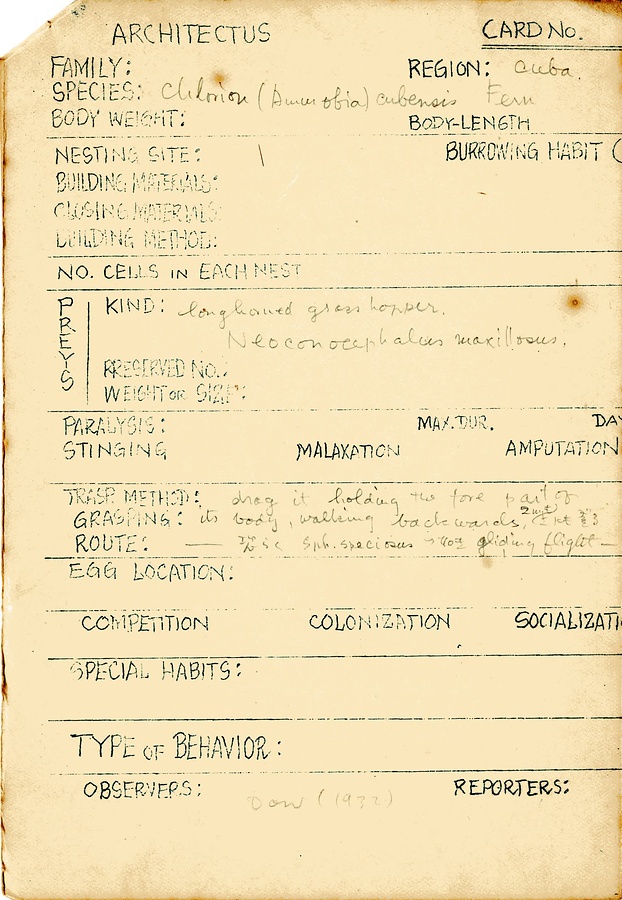 ARCHITECTUS CARD No.
FAMILY: REGION: Cuba.
SPECIES: Chlorion (Ammobia) cubensis Fern
BODY WEIGHT: BODY-LENGTH
NESTING SITE: BURROWING HABIT (
BUILDING MATERIALS:
CLOSING MATERIALS:
BUILDING METHOD:
NO. CELLS IN EACH NEST
PREYS
KIND: longhorned grasshopper.
Neoconocephalus maxillosus.
PRESERVED NO.:
WEIGHT OR SIZE:
PARALYSIS: MAX. DUR. DAY
STINGING MALAXATION AMPUTATION
TRASP METHOD: drag it holding the fore part of
GRASPING: its body, walking backwards,
ROUTE: — Sph. speciosus gliding flight —
EGG LOCATION:
COMPETITION COLONIZATION SOCIALIZATI
SPECIAL HABITS:
TYPE OF BEHAVIOR:
OBSERVERS: Dow (1932) REPORTERS: